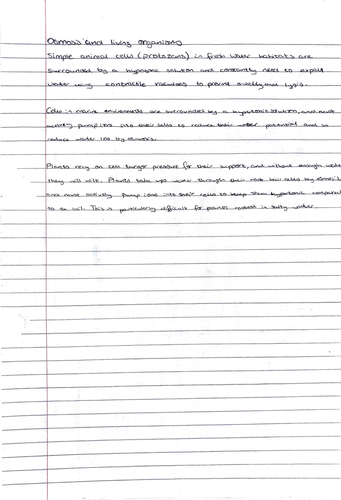 Osmosis and living organisms
Simple animal cells (protozoans) in fresh water habitats are
surrounded by a hypotonic solution and constantly need to expell
water using contractile vacuoles to prevent swelling and lysis.
Cells in marine environments are surrounded by a hypertonic solution, and must
actively pump ions into their cells to reduce their water potential and so
reduce water loss by osmosis.
Plants rely on cell turgor pressure for their support, and without enough water
they will wilt. Plants take up water through their root hair cells by osmosis,
and must actively pump ions into their cells to keep them hypertonic compared
to the soil. This is particularly difficult for plants rooted in salty water.